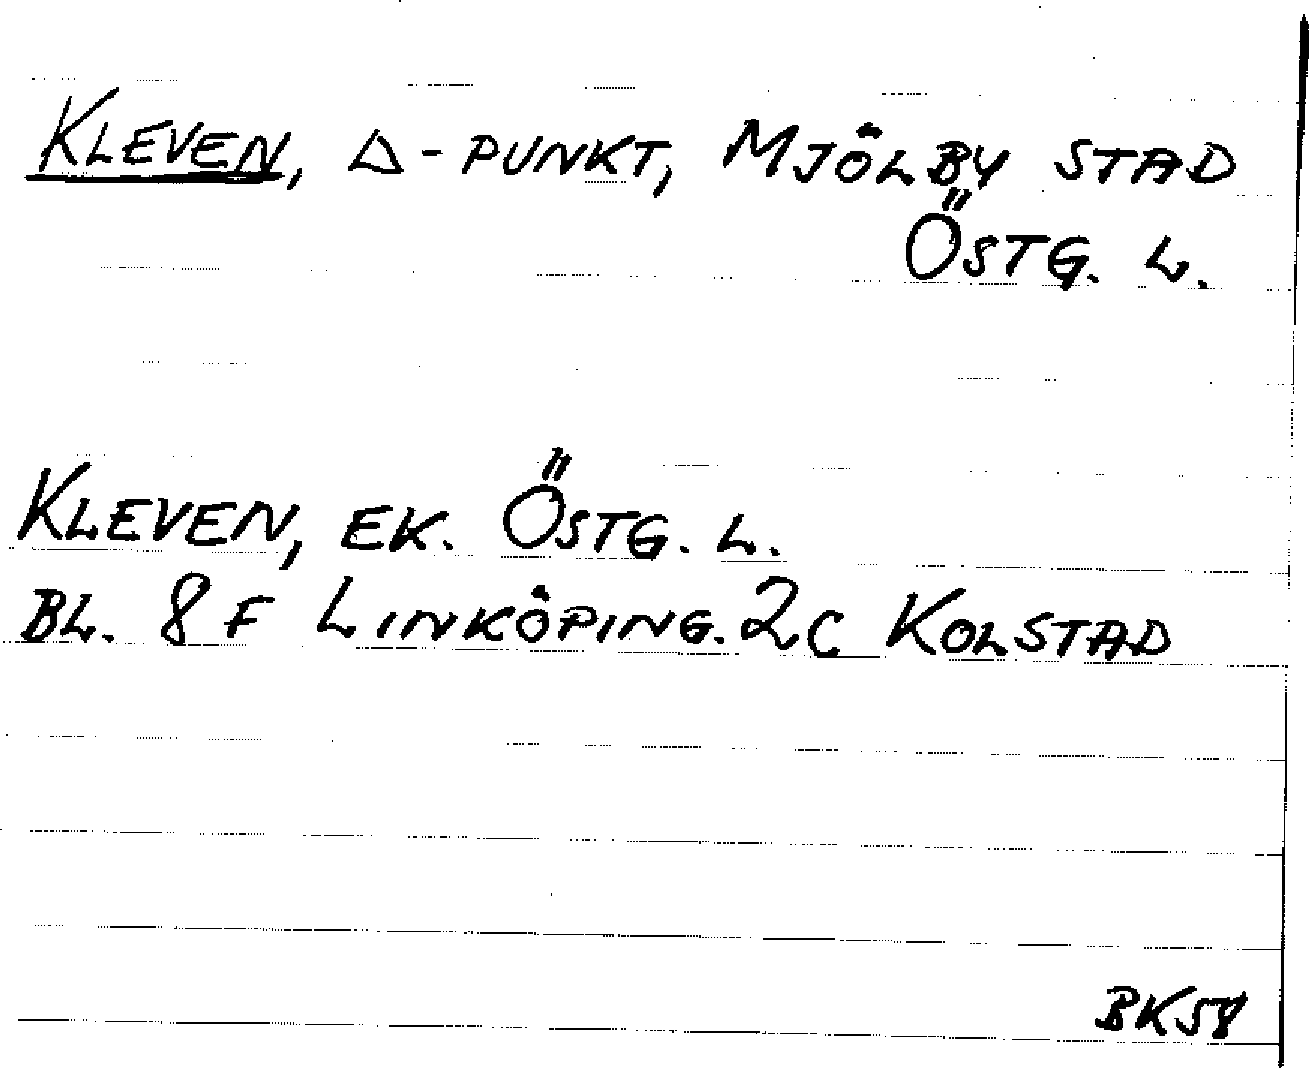 KLEVEN, Δ-PUNKT, MJÖLBY STAD
ÖSTG. L.
KLEVEN, EK. ÖSTG. L.
BL. 8F LINKÖPING. 2C KOLSTAD
BK58